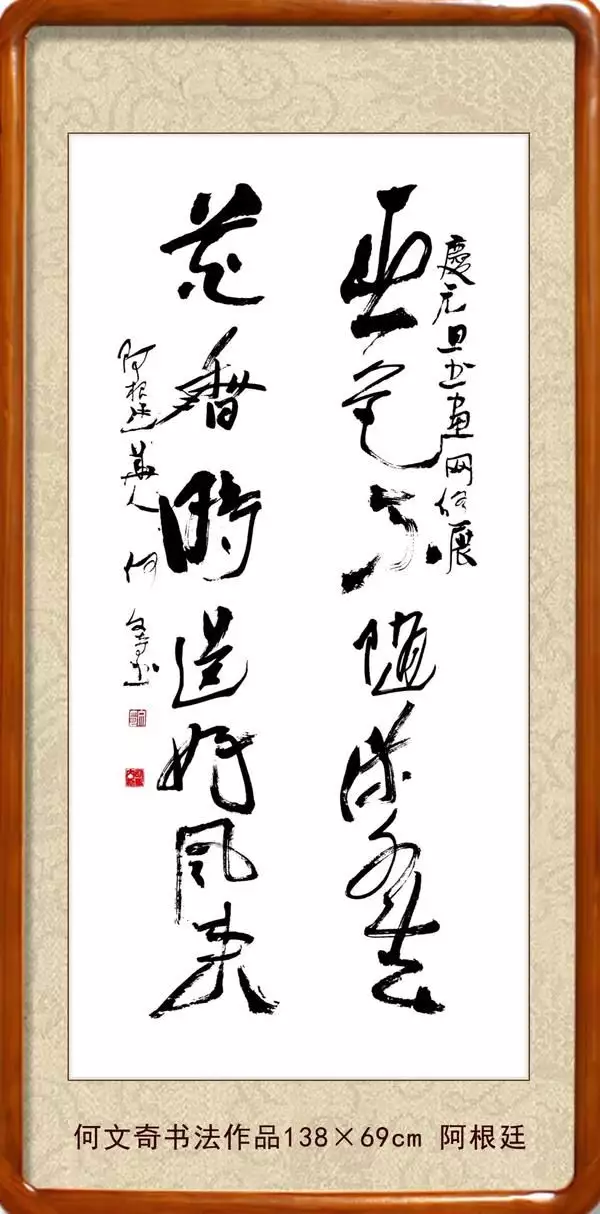 慶元旦书画网络展
色不隨流水去
花香時送好風来
阿根廷華人 何文奇书
何文奇书法作品138×69cm 阿根廷